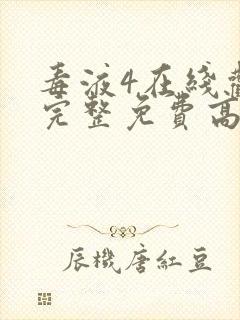 毒液4在綫
完整免費高
辰機唐紅豆